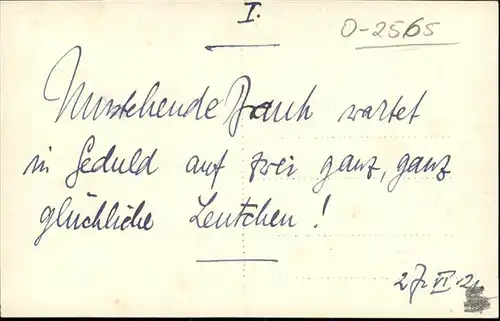 I.
O-2565
Umstehende Bank wartet
in Geduld auf zwei ganz, ganz
glückliche Leutchen!
27. VI.